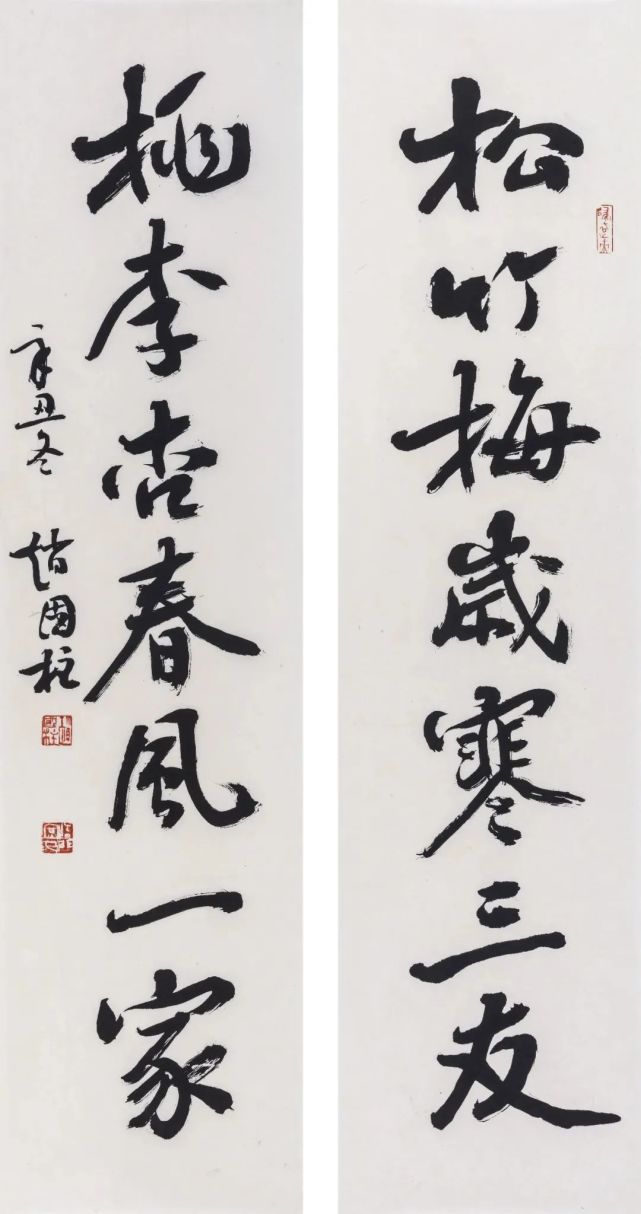 松竹梅歲寒三友
桃李杏春風一家
辛丑冬 趙國柱